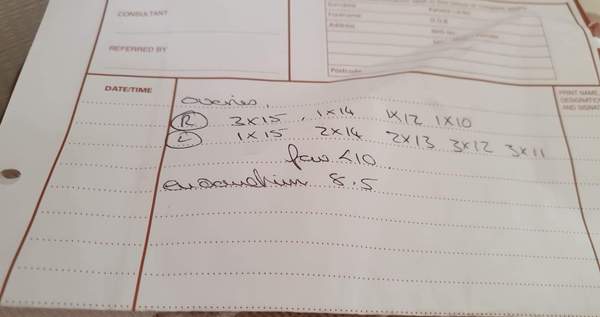 CONSULTANT
REFERRED BY
Surname
Forename
Address
D.O.B.
Postcode
DATE/TIME
PRINT NAME,
DESIGNATION
AND SIGNAT
ovaries,
(R) 3x15, 1x14 1x12 1x10
(L) 1x15 2x14 2x13 3x12 3x11
few <10
endometrium 8.5